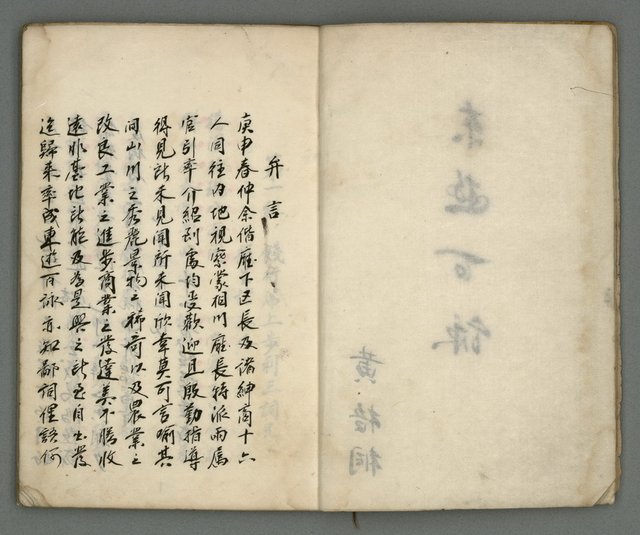 東遊百詠
黃梧桐
弁言
庚申春仲余偕廳下區長及諸紳商十六
人同往內地視察蒙相川廳長特派兩屬
官引率介紹到處均受歡迎且殷勤指導
得見所未見聞所未聞欣幸莫可言喻其
間山川之秀麗景物之稀奇以及農業之
改良工業之進步商業之發達美不勝收
遠非基地所能及為是興之所至自出發
迄歸來率成東遊百詠亦知鄙詞俚語何